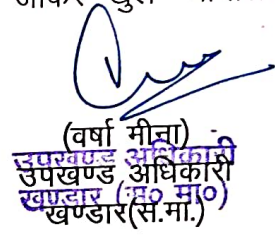 (वर्षा मीना)
उपखण्ड अधिकारी
उपखण्ड अधिकारी
खण्डार (स० मा०)
खण्डार(स.मा.)